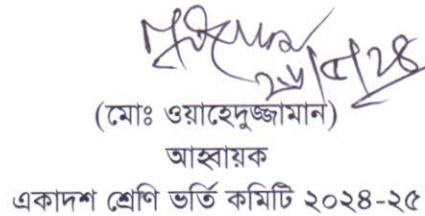 (মোঃ ওয়াহেদুজ্জামান)
আহ্বায়ক
একাদশ শ্রেণি ভর্তি কমিটি ২০২৪-২৫